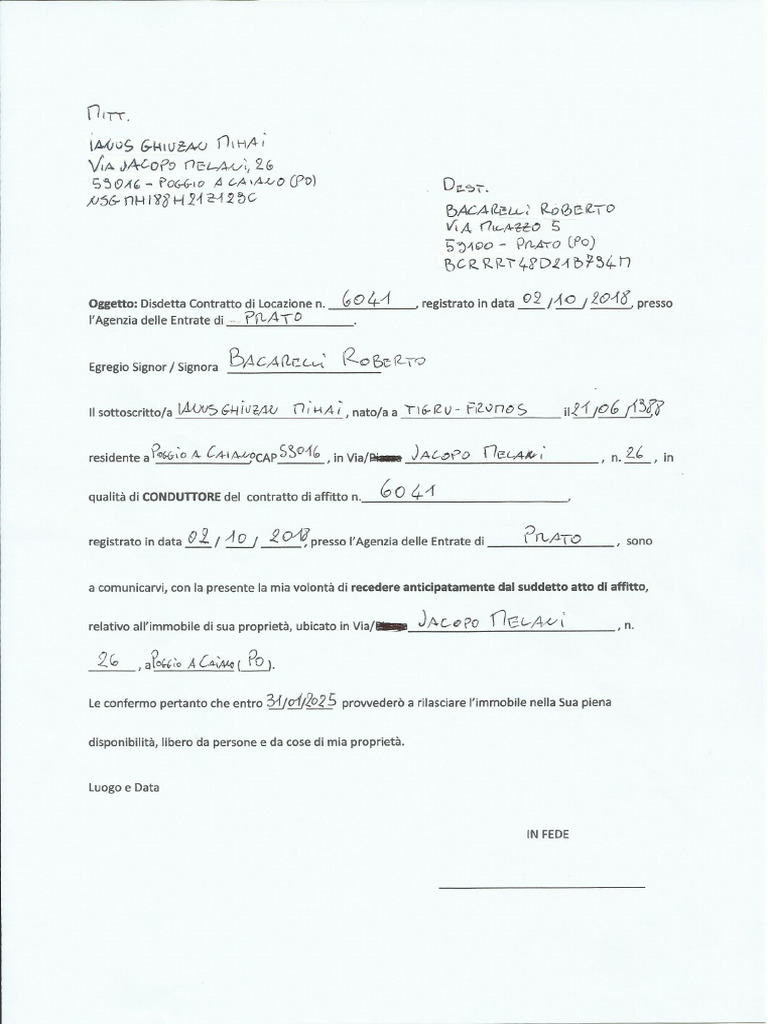 MITT.
IANUS GHIUZAN MIHAI
VIA JACOPO MELANI, 26
59016 - POGGIO A CAIANO (PO)
NSGMHI88H21Z129C
DEST.
BACARELLI ROBERTO
VIA MILAZZO 5
59100 - PRATO (PO)
BCRRRT48D21B794M
Oggetto: Disdetta Contratto di Locazione n. 6041, registrato in data 02/10/2018, presso
l'Agenzia delle Entrate di PRATO.
Egregio Signor / Signora BACARELLI ROBERTO
Il sottoscritto/a IANUS GHIUZAN MIHAI, nato/a a TIGRU-FRUMOS il 21/06/1988
residente a POGGIO A CAIANO CAP 59016, in Via/ JACOPO MELANI, n. 26, in
qualità di CONDUTTORE del contratto di affitto n. 6041,
registrato in data 02/10/2018, presso l'Agenzia delle Entrate di PRATO, sono
a comunicarvi, con la presente la mia volontà di recedere anticipatamente dal suddetto atto di affitto,
relativo all'immobile di sua proprietà, ubicato in Via/ JACOPO MELANI, n.
26, a POGGIO A CAIANO (PO).
Le confermo pertanto che entro 31/01/2025 provvederò a rilasciare l'immobile nella Sua piena
disponibilità, libero da persone e da cose di mia proprietà.
Luogo e Data
IN FEDE